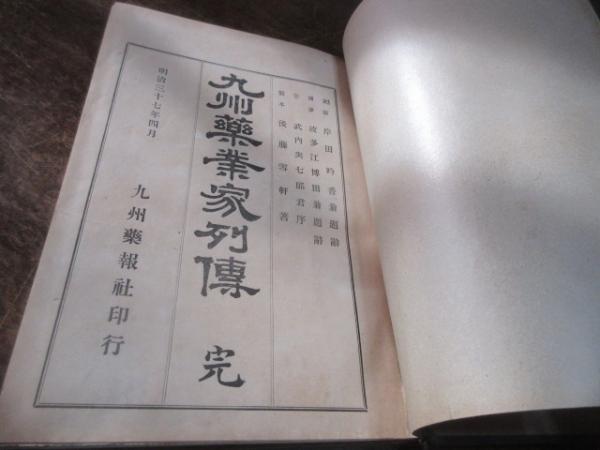 岸田吟香翁題辭
博多 波多江博田翁題辭
武内與七郎君序
熊本 後藤雪軒著
九州藥業家列傳 完
明治三十七年四月
九州藥報社印行